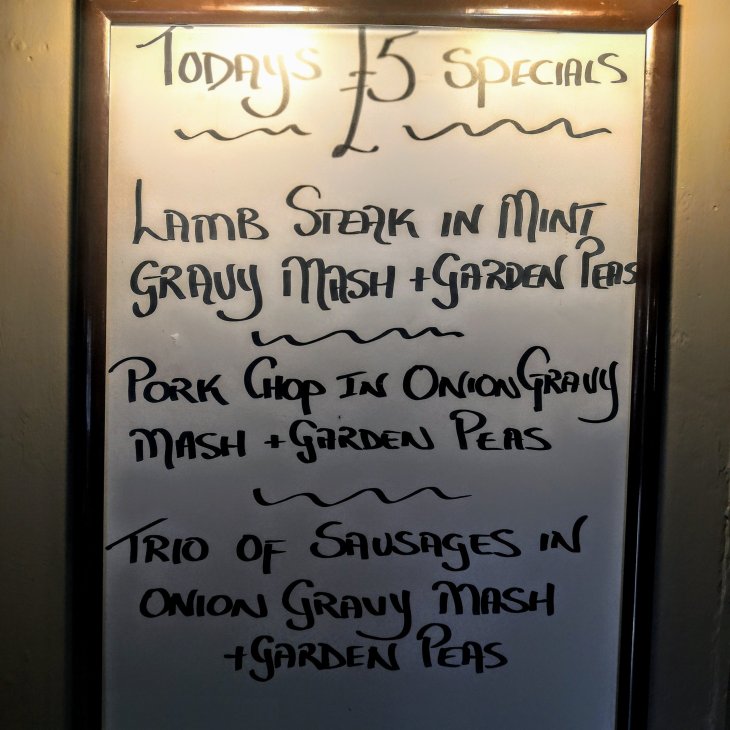 Todays £5 Specials
Lamb Steak in Mint
Gravy Mash + Garden Peas
Pork Chop in Onion Gravy
Mash + Garden Peas
Trio of Sausages in
Onion Gravy Mash
+ Garden Peas